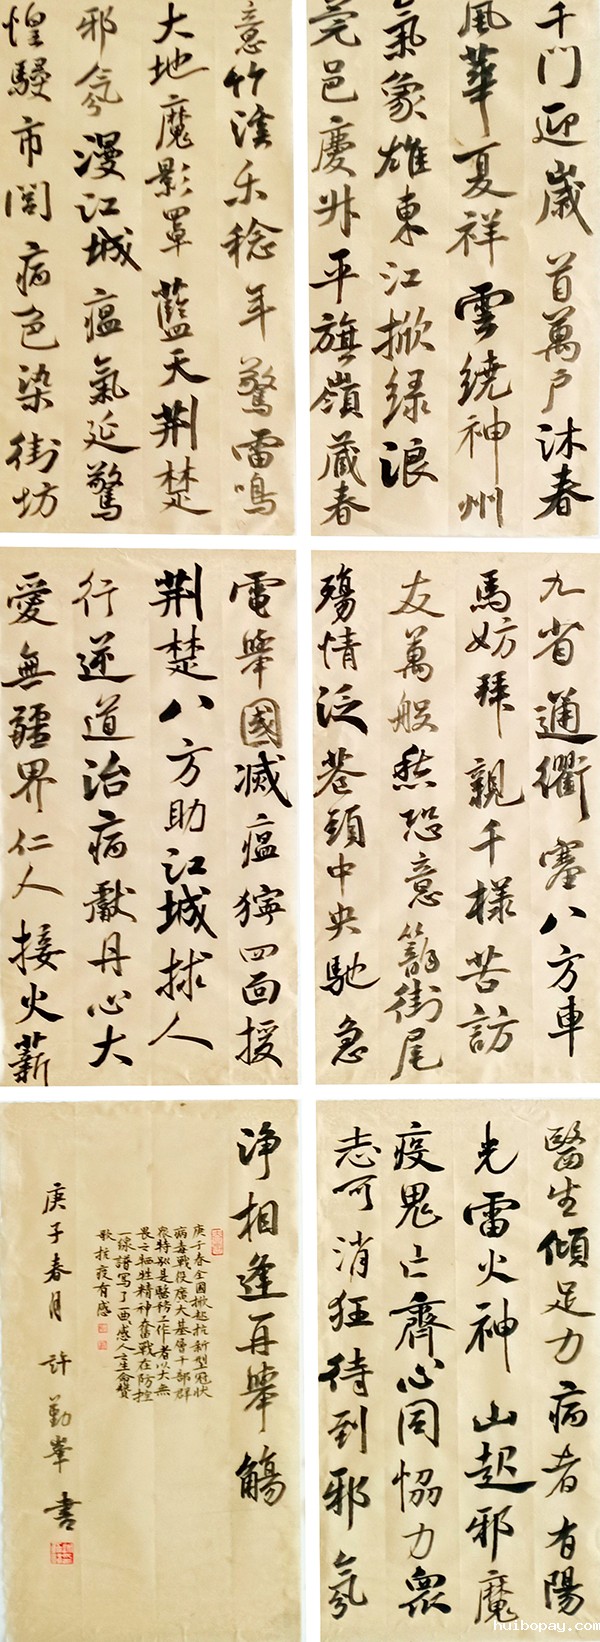 千門迎歲首萬戶沐春
風華夏祥雲繞神州
氣象雄東江掀绿浪
莞邑慶升平旗嶺藏春
意竹溪禾稔年驚雷鳴
大地魔影罩藍天荆楚
邪氛漫江城瘟氣延驚
惶騷市閭病色染街坊
九省通衢塞八方車
馬妨拜親千樣苦訪
友萬般愁恐意籠街尾
殤情泛巷頭中央馳急
電舉國滅瘟獰四面援
荆楚八方助江城捄人
行逆道治病獻丹心大
愛無疆界仁人接火薪
醫生傾足力病者有陽
光雷火神山起邪魔
疫鬼亡齊心同協力衆
志可消狂待到邪氛
淨相逢再舉觴
庚子春全國掀起抗新型冠狀
病毒戰役廣大基層干部群
眾特别是醫務工作者以大無
畏之牺牲精神奮戰在防控
一線譜寫了一典感人生命贊
歌抗疫有感
庚子春月許勤峯書
huibopay.com